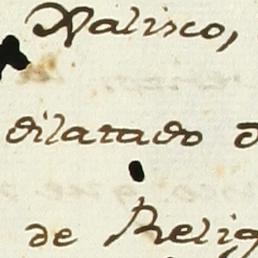 Xalisco,
dilatado d
de Relig